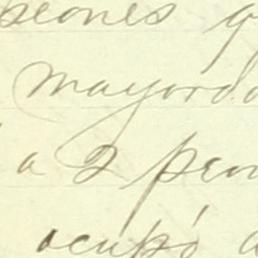 peones q
mayordo
a 2 peon
ocupó a